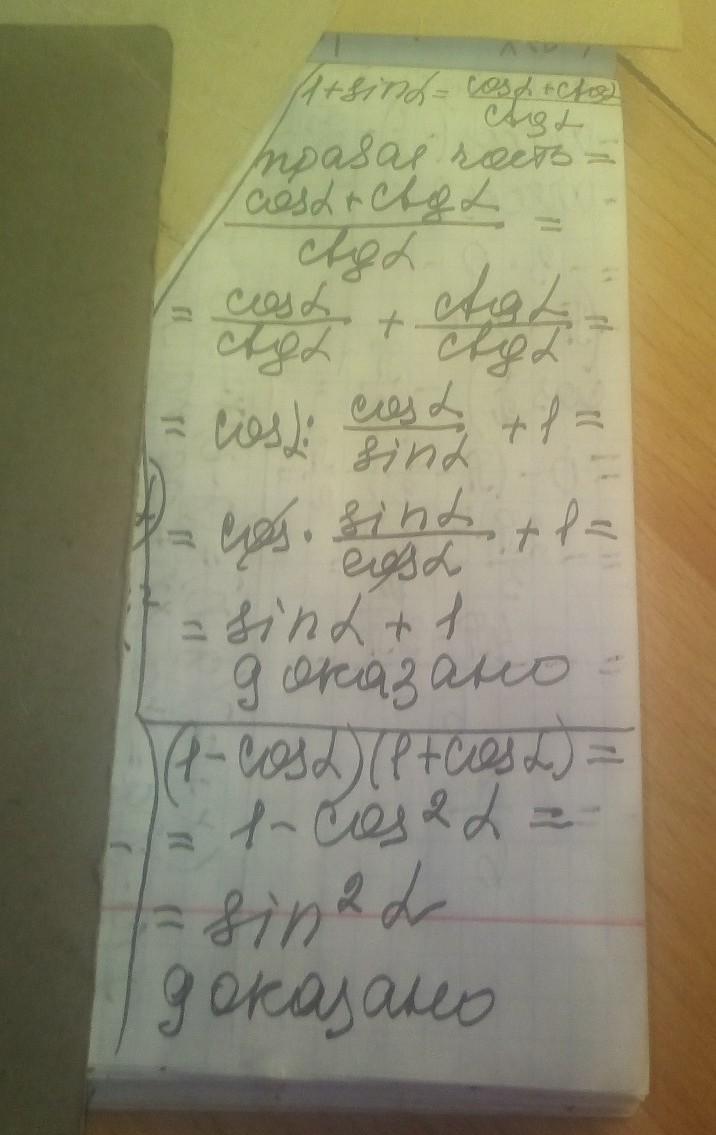 1 + sinα = (cosα + ctgα) / ctgα
правая часть =
(cosα + ctgα) / ctgα =
= cosα / ctgα + ctgα / ctgα =
= cosα : cosα / sinα + 1 =
= cos · sinα / cosα + 1 =
= sinα + 1
доказано
(1 - cosα)(1 + cosα) =
= 1 - cos²α =
= sin²α
доказано